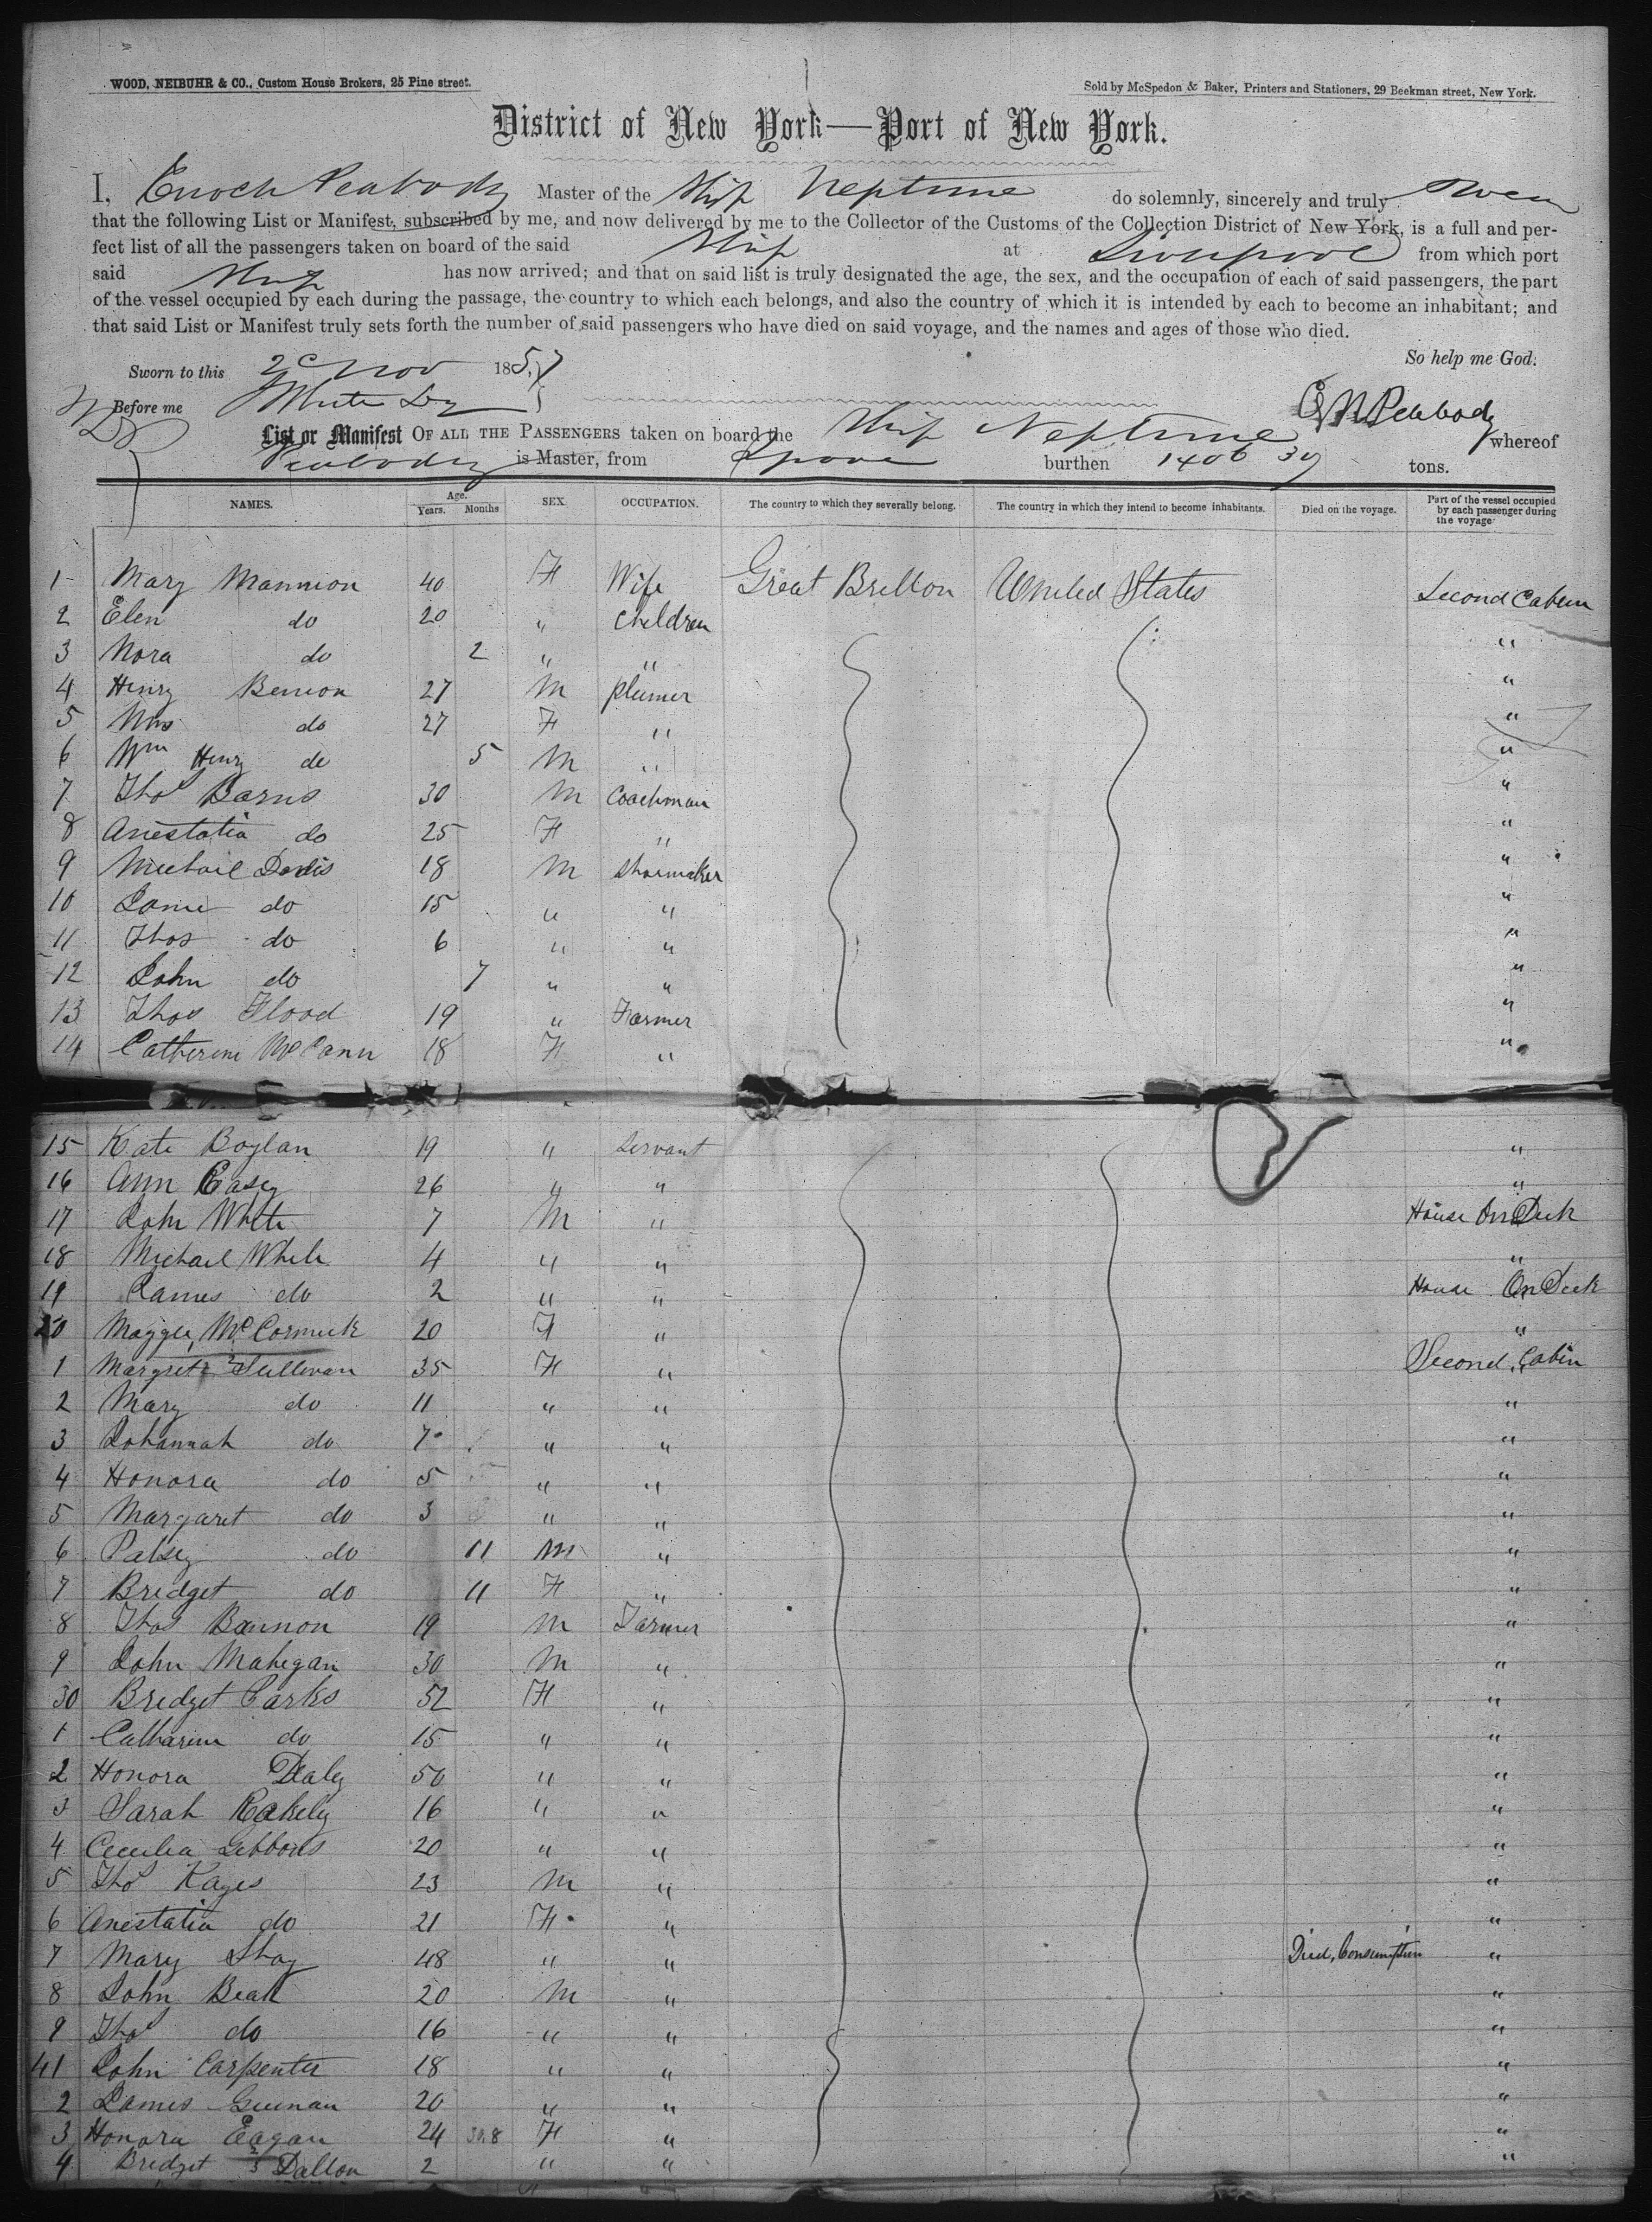 WOOD, NEIBUHR & CO., Custom House Brokers, 25 Pine street.
Sold by McSpedon & Baker, Printers and Stationers, 29 Beekman street, New York.
District of New York—Port of New York.
I, Enoch Peabody Master of the Ship Neptune do solemnly, sincerely and truly swear
that the following List or Manifest, subscribed by me, and now delivered by me to the Collector of the Customs of the Collection District of New York, is a full and per-
fect list of all the passengers taken on board of the said Ship at Liverpool from which port
said Ship has now arrived; and that on said list is truly designated the age, the sex, and the occupation of each of said passengers, the part
of the vessel occupied by each during the passage, the country to which each belongs, and also the country of which it is intended by each to become an inhabitant; and
that said List or Manifest truly sets forth the number of said passengers who have died on said voyage, and the names and ages of those who died.
So help me God.
Sworn to this 2 Nov 1857
Before me
E N Peabody
List or Manifest OF ALL THE PASSENGERS taken on board the Ship Neptune whereof
Peabody is Master, from Lpool burthen 1406 tons.
NAMES. Age. Years. Months SEX. OCCUPATION. The country to which they severally belong. The country in which they intend to become inhabitants. Died on the voyage. Part of the vessel occupied by each passenger during the voyage
1 Mary Mannion 40 F Wife Great Britton United States Second Cabin
2 Elen do 20 " Children
3 Nora do 2 " " "
4 Henry Benion 27 M plumer "
5 Mrs do 27 F " "
6 Wm Henry do 5 M " "
7 Thos Barns 30 M Coachman "
8 Anestatia do 25 F " "
9 Michail Davis 18 M Shoemaker "
10 Jame do 15 " " "
11 Thos do 6 " " "
12 John do 7 " " "
13 Thos Flood 19 " Farmer "
14 Catherine McCann 18 F " "
15 Kate Boylan 19 " Servant "
16 Ann Casey 26 " " "
17 John White 7 M " House On Deck
18 Michael White 4 " " "
19 James do 2 " " House On Deck
20 Maggie McCormick 20 F " "
1 Margret Sullivan 35 F " Second Cabin
2 Mary do 11 " " "
3 Johannah do 7 " " "
4 Honora do 5 " " "
5 Margaret do 3 " " "
6 Patsey do 11 M " "
7 Bridget do 11 F " "
8 Thos Bannon 19 M Farmer "
9 John Mahegan 30 M " "
30 Bridget Parks 52 F " "
1 Catharine do 15 " " "
2 Honora Daley 50 " " "
3 Sarah Rakely 16 " " "
4 Cecelia Gibbons 20 " " "
5 Thos Kayes 23 M " "
6 Anestatia do 21 F " "
7 Mary Shay 48 " " Died, Consumption "
8 John Beak 20 M " "
9 Thos do 16 " " "
41 John Carpenter 18 " " "
2 James Guinan 20 " " "
3 Honora Eagan 24 F " "
4 Bridget Dalton 2 " " "